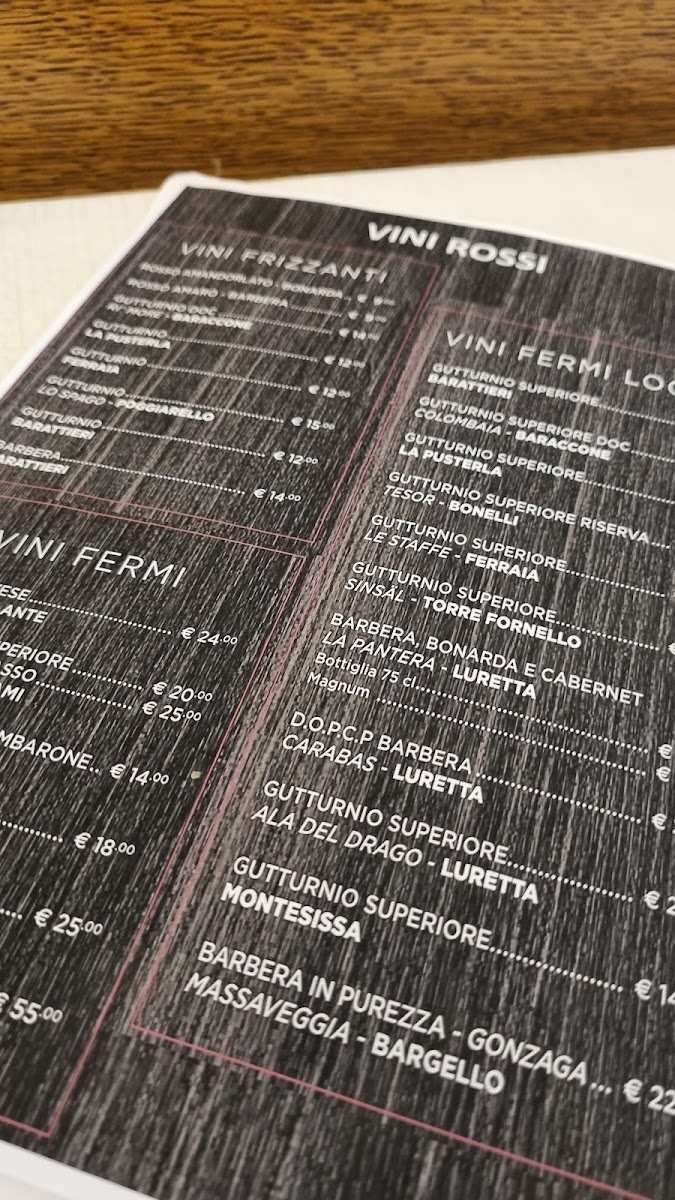 VINI ROSSI
VINI FRIZZANTI
ROSSO AMANDORLATO - BONARDA .. €
ROSSO AMARO - BARBERA
GUTTURNIO DOC
BARACCONE
GUTTURNIO
LA PUSTERLA
€ 12.00
GUTTURNIO
FERRAIA
€ 12.00
GUTTURNIO
LO SPAGO - POGGIARELLO
€ 15.00
GUTTURNIO
BARATTIERI
€ 12.00
BARBERA
BARATTIERI
€ 14.00
VINI FERMI
ESE
LANTE
€ 24.00
PERIORE
€ 20.00
ASSO
€ 25.00
AMI
MBARONE.. € 14.00
€ 18.00
€ 25.00
€ 55.00
VINI FERMI LOC
GUTTURNIO SUPERIORE
BARATTIERI
GUTTURNIO SUPERIORE DOC
COLOMBAIA - BARACCONE
GUTTURNIO SUPERIORE
LA PUSTERLA
GUTTURNIO SUPERIORE RISERVA
TESOR - BONELLI
GUTTURNIO SUPERIORE
LE STAFFE - FERRAIA
GUTTURNIO SUPERIORE
SINSÀL - TORRE FORNELLO
BARBERA, BONARDA E CABERNET
LA PANTERA - LURETTA
Bottiglia 75 cl. €
Magnum €
D.O.P.C.P BARBERA €
CARABAS - LURETTA
GUTTURNIO SUPERIORE € 2
ALA DEL DRAGO - LURETTA
GUTTURNIO SUPERIORE € 14
MONTESISSA
BARBERA IN PUREZZA - GONZAGA... € 22
MASSAVEGGIA - BARGELLO